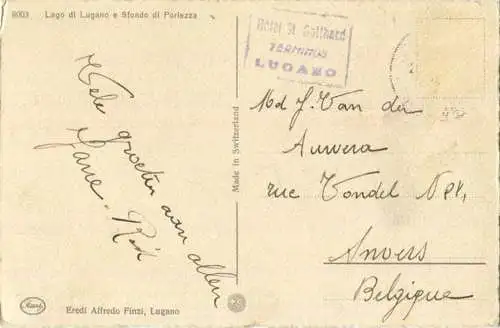 8003 Lago di Lugano e Sfondo di Porlezza
Hotel St Gotthard
TERMINUS
LUGANO
Vele groeten aan allen
Jane. Rik
Md J. Van der
Auwera
rue Vondel
Anvers
Belgique
Made in Switzerland
Eredi Alfredo Finzi, Lugano